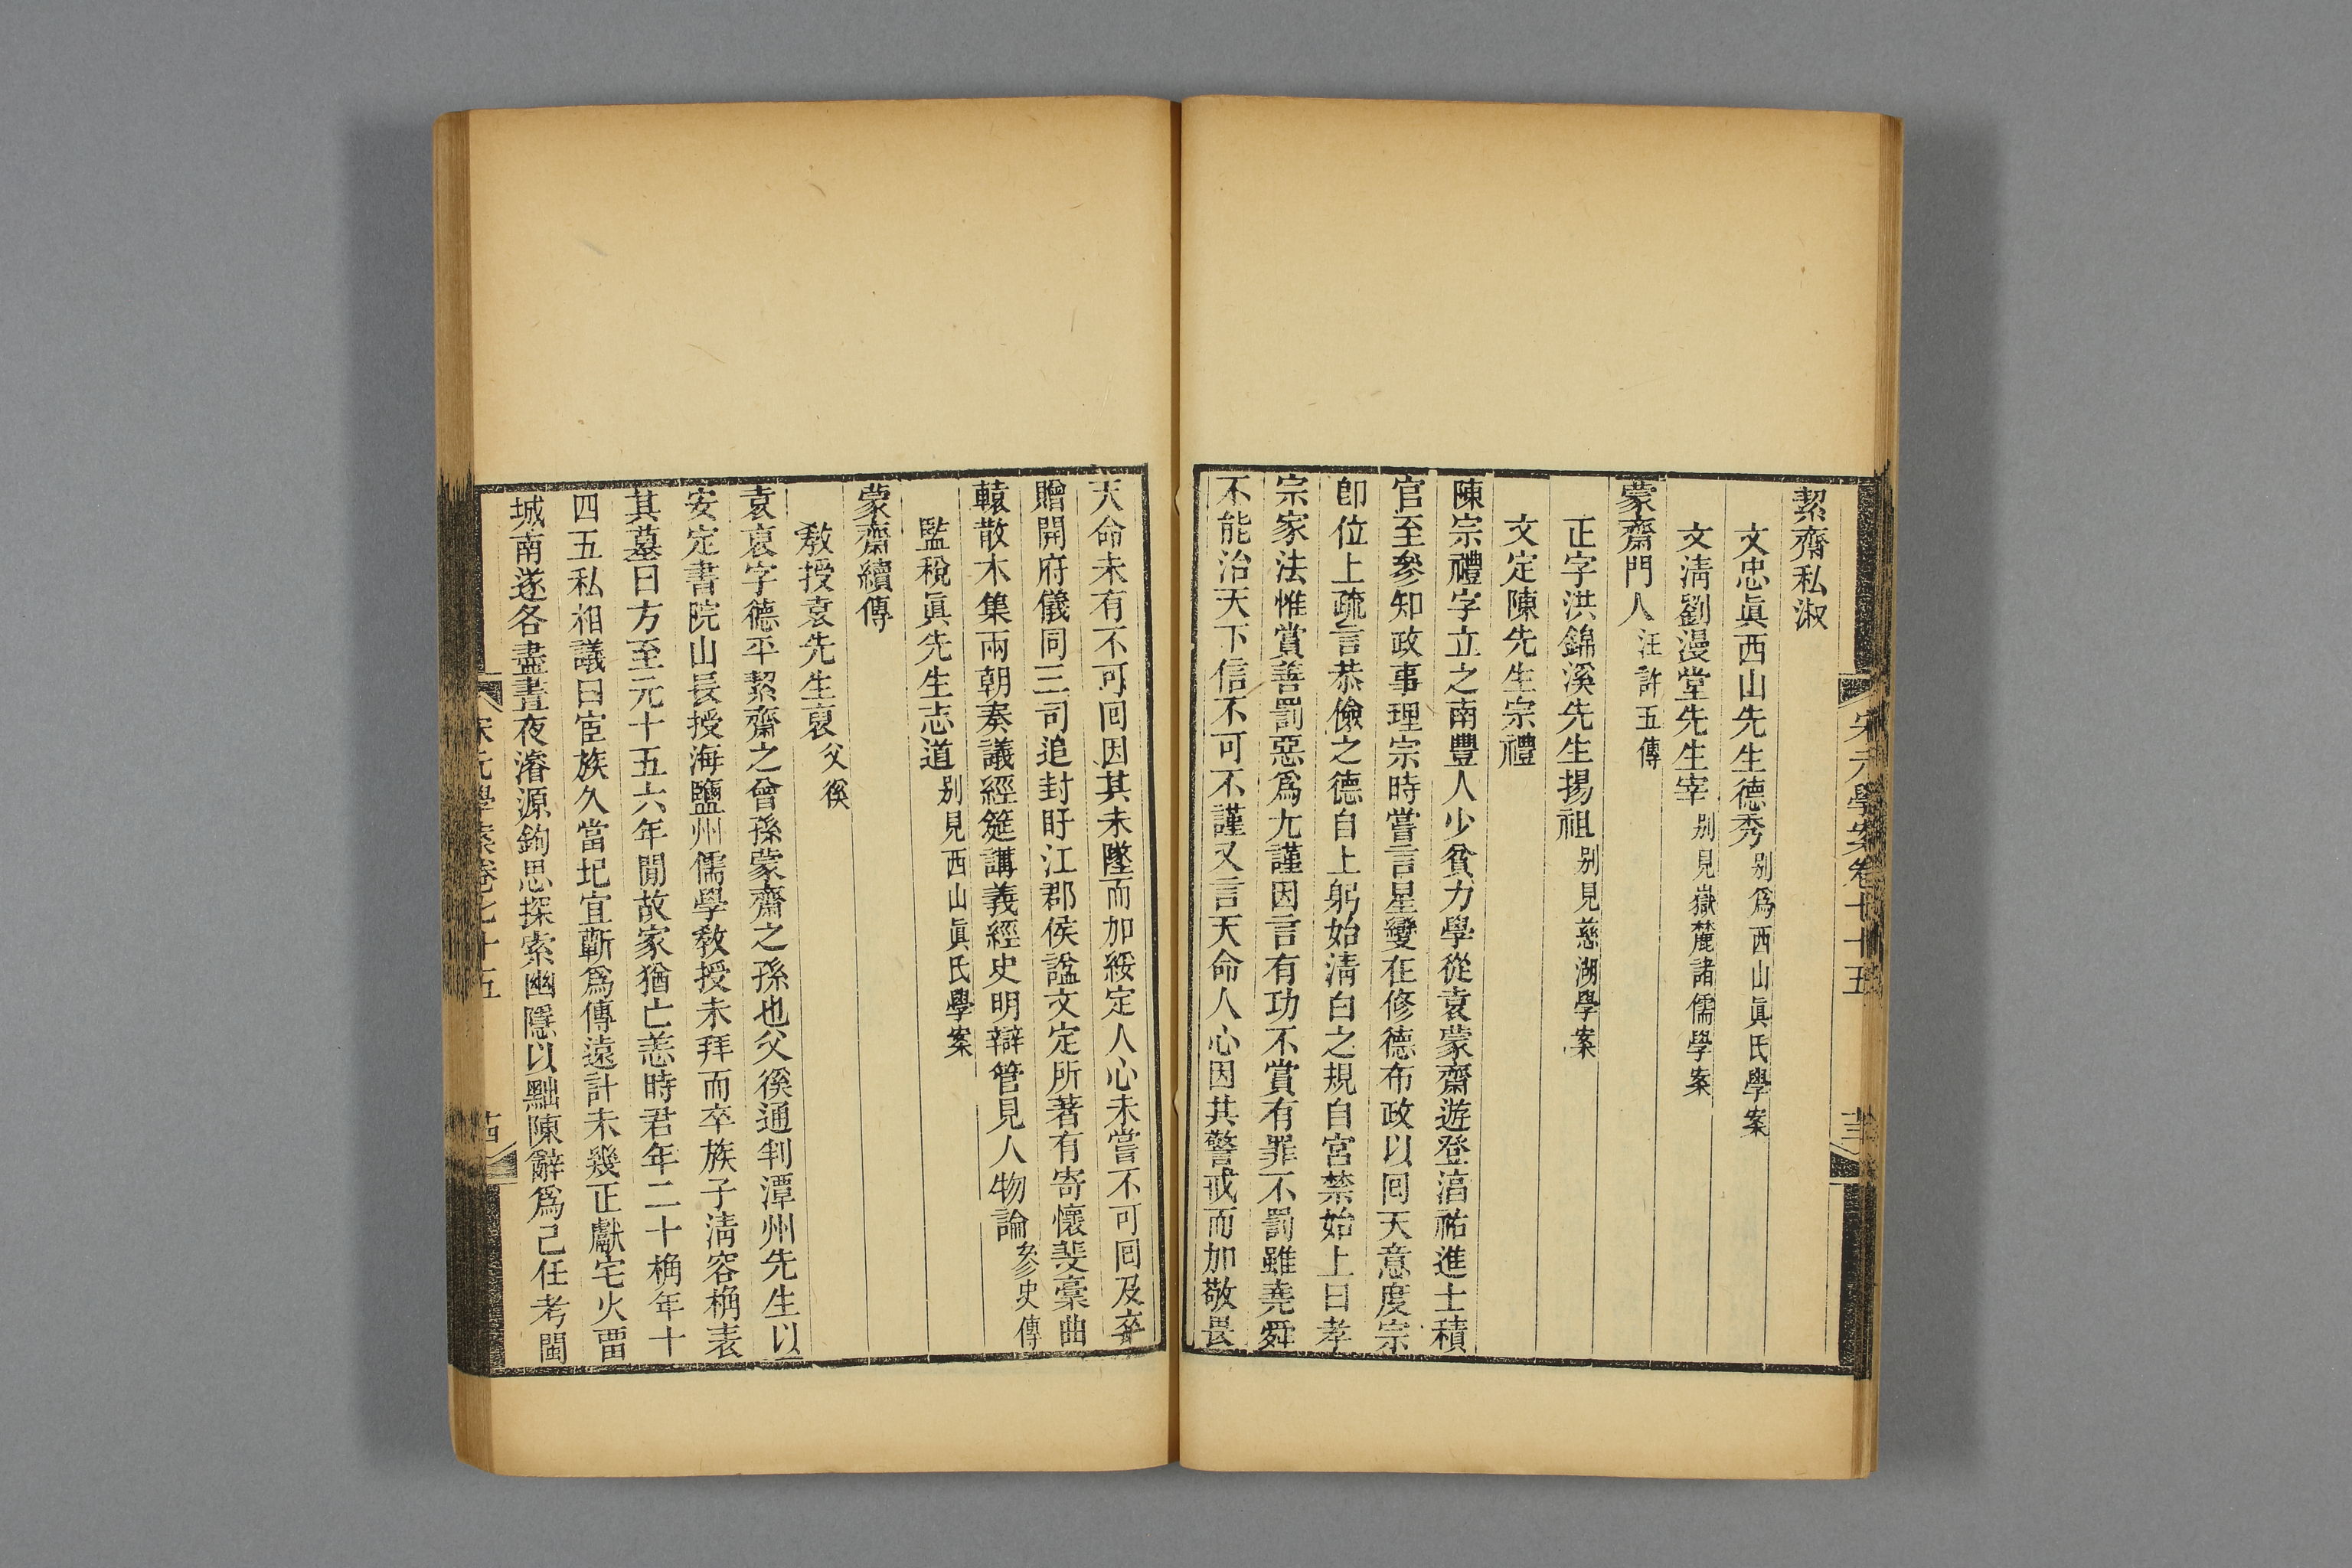 宋元學案卷七十五
絜齊私淑
文忠眞西山先生德秀别爲西山眞氏學案
文淸劉漫堂先生宰别見嶽麓諸儒學案
蒙齋門人汪許五傳
正字洪錦溪先生揚祖别見慈湖學案
文定陳先生宗禮
陳宗禮字立之南豐人少貧力學從袁蒙齋遊登淳祐進士積
官至參知政事理宗時嘗言星變在修德布政以囘天意度宗
卽位上疏言恭儉之德自上躬始淸白之規自宮禁始上曰孝
宗家法惟賞善罰惡爲尤謹因言有功不賞有罪不罰雖堯舜
不能治天下信不可不謹又言天命人心因其警戒而加敬畏
天命未有不可囘因其未墜而加綏定人心未嘗不可囘及卒
贈開府儀同三司追封盱江郡侯諡文定所著有寄懷斐稾曲
轅散木集兩朝奏議經筵講義經史明辯管見人物論參史傳
監稅眞先生志道别見西山眞氏學案
蒙齋續傳
敎授袁先生裒父徯
袁裒字德平絜齋之曾孫蒙齋之孫也父徯通判潭州先生以
安定書院山長授海鹽州儒學敎授未拜而卒族子淸容桷表
其墓曰方至元十五六年閒故家猶亡恙時君年二十桷年十
四五私相議曰宦族久當圮宜蘄爲傳遠計未幾正獻宅火畱
城南遂各盡晝夜濬源鉤思探索幽隱以黜陳辭爲己任考閩
宋元學案卷七十五